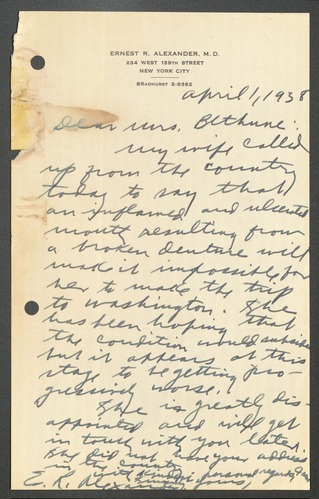 ERNEST R. ALEXANDER, M.D.
234 WEST 139TH STREET
NEW YORK CITY
BRADHURST 2-8362
April 1, 1938
Dear Mrs. Bethune:
My wife called
up from the country
today to say that
an inflamed and ulcerated
mouth resulting from
a broken denture will
make it impossible for
her to make the trip
to Washington. She
has been hoping that
the condition would subside
but it appears at this
stage to be getting pro-
gressively worse.
She is greatly dis-
appointed and will get
in touch with you later.
She did not have your address
in the country.
with kindest personal regards, I am
Sincerely yours,
E. R. Alexander